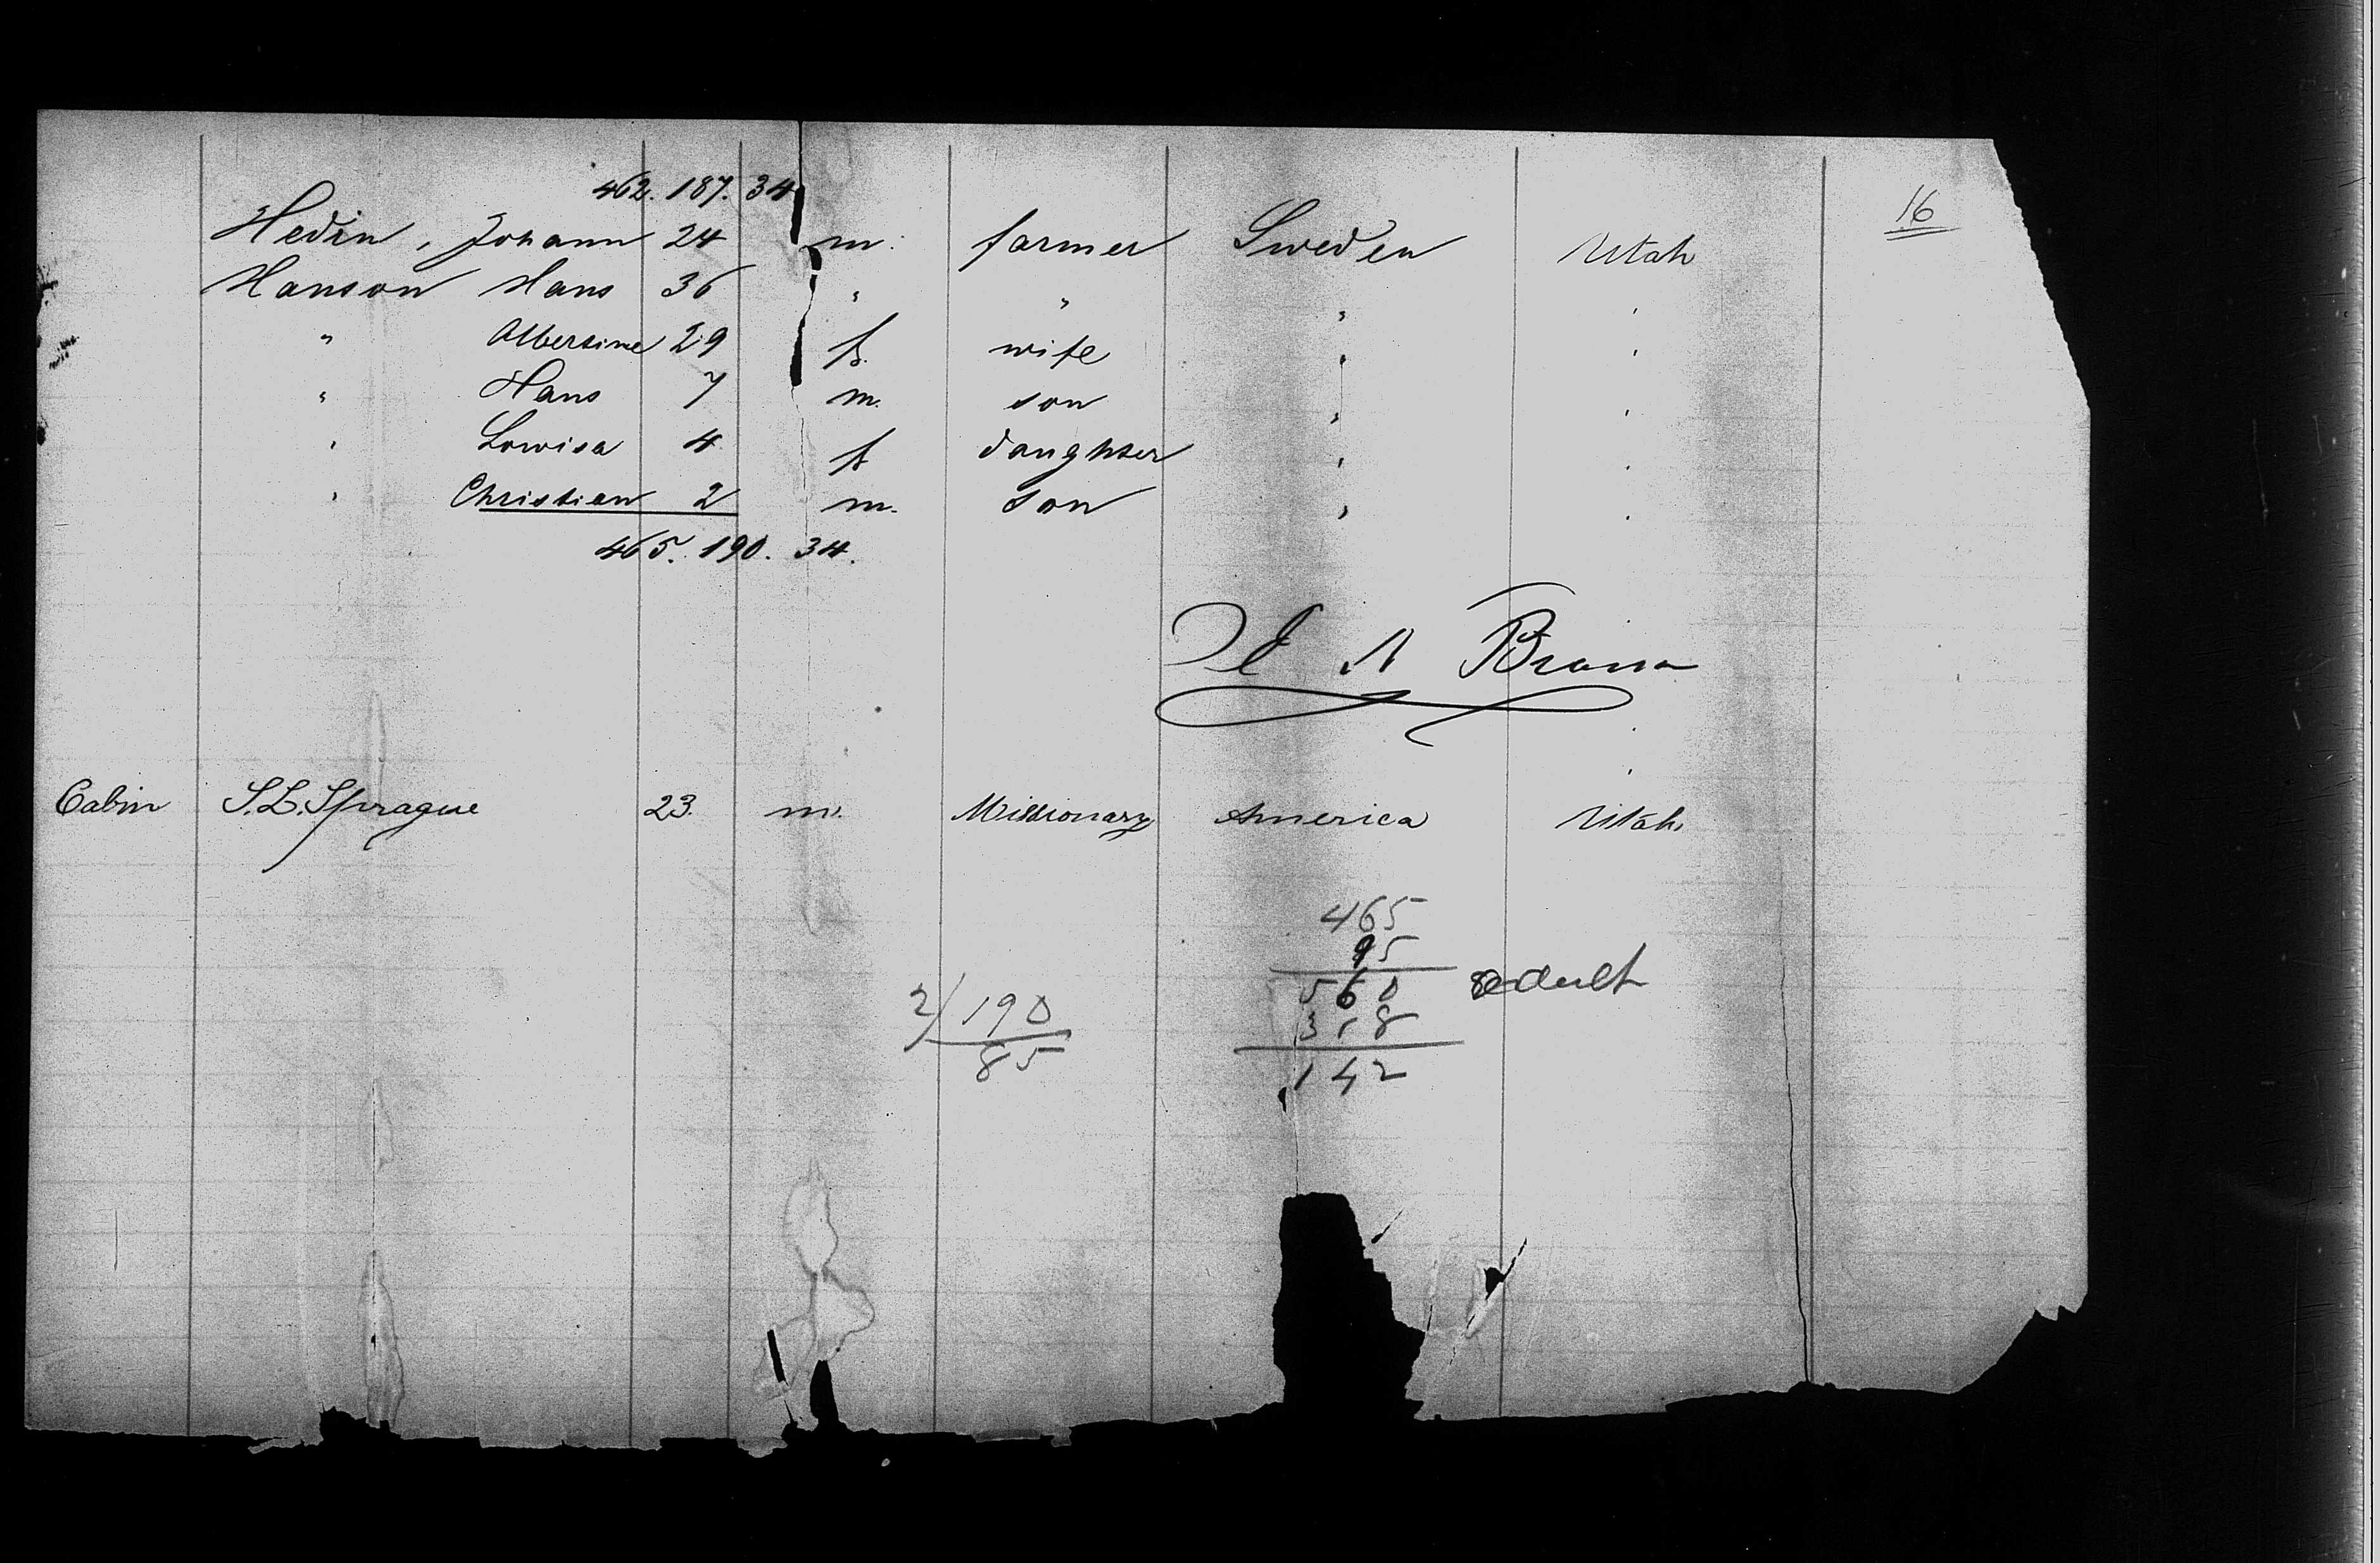 16
462. 187. 34
Hedin, Johann 24 m. farmer Sweden Utah
Hanson Hans 36 " " " "
" Albertine 29 f. wife " "
" Hans 7 m. son " "
" Lowisa 4 f daughter " "
" Christian 2 m. son " "
465. 190. 34.
A Braun
Cabin S.L. Sprague 23. m. Missionary America Utah
465
95
560 adult
318
142
2/ 190
85